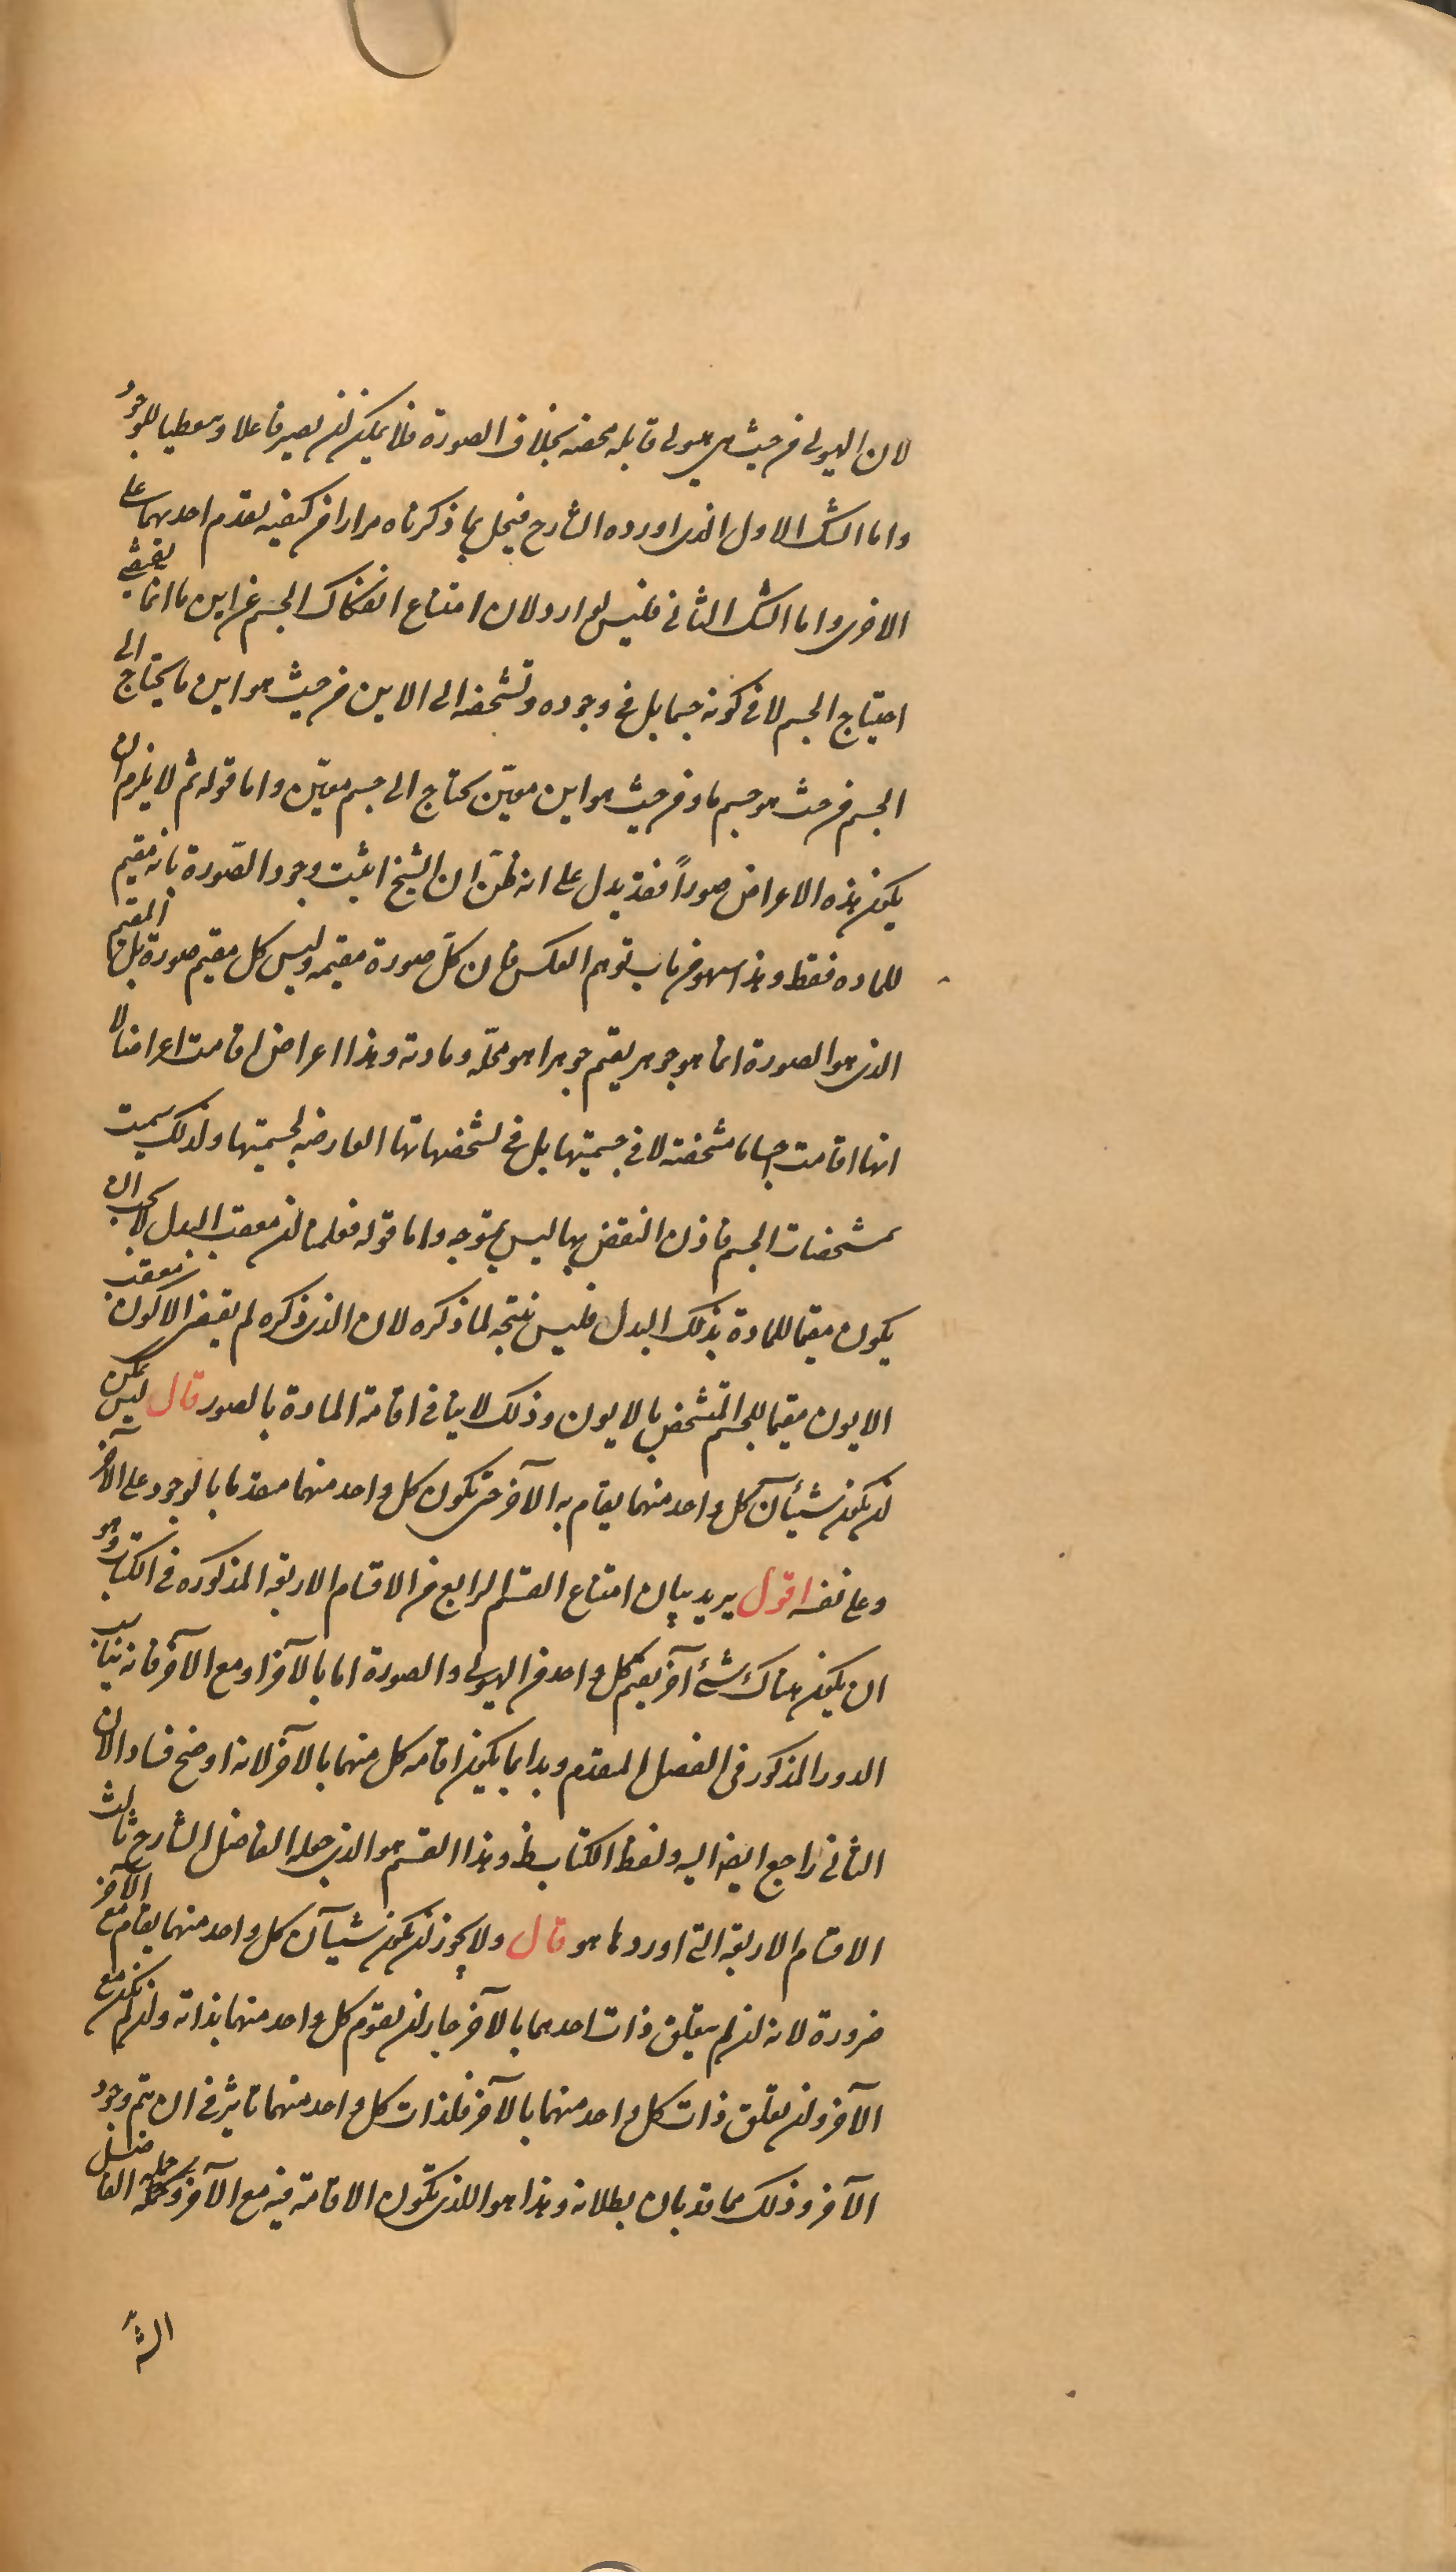 لان الهيولى من حيث هى هيولى قابله محضه بخلاف الصورة فلا يمكن ان يصير فاعلا ومعطيا للوجود
واما الشك الاول الذى اورده الشارح فيحل بما ذكرناه مرارا فى كيفيه تقدم احديهما على
الاخرى واما الشك الثانى فليس بوارد لان امتناع انفكاك الجسم عن اين ما انما يقتضى
احتياج الجسم لا فى كونه جسما بل فى وجوده وتشخصه الى الاين من حيث هو اين ما يحتاج الى
الجسم من حيث هو جسم ما ومن حيث هو اين معيّن يحتاج الى جسم معيّن واما قوله ثم لا يلزم ان
يكون هذه الاعراض صوراً فقد يدل على انه ظنّ ان الشيخ اثبت وجود الصّورة بانه مقيم
للماده فقط وهذا سهو من باب توهم العكس فان كلّ صورة مقيمه وليس كل مقيم صورة بل المقيم
الذى هو الصورة انما هو جوهر يقيم جوهرا هو محلّه ومادته وهذا اعراض اقامت اعراضا لا
انها اقامت اجساما مشخصة لا فى جسميتها بل فى تشخصاتها العارضه لجسميتها ولذلك سميت
بمشخصات الجسم فاذن النقض بها ليس بمتوجه واما قوله فعلمنا ان معقب البدل لا يجب ان
يكون مقيما للمادة بذلك البدل فليس نتيجه لما ذكره لان الذى ذكره لم يقتض الا كون معقب
الايون مقيما للجسم المتشخص بالايون وذلك لا ينافى اقامة المادة بالصور قال ليس يمكن
ان يكون شيئآن كل واحد منهما يقام به الآخر حتى يكون كل واحد منهما متقدما بالوجود على الآخر
وعلى نفسه اقول يريد بيان امتناع القسم الرابع من الاقسام الاربعه المذكوره فى الكتاب وهو
ان يكون هناك شئ آخر يقيم كل واحد من الهيولى والصورة اما بالآخر او مع الآخر فانه يناسب
الدور المذكور فى الفصل المتقدم وبدا بما يكون اقامه كل منهما بالآخر لانه اوضح فسادا لان
الثانى راجع ايضا اليه ولفظ الكتاب ظ وهذا القسم هو الذى جعله الفاضل الشارح ثالث
الاقسام الاربعه التى اوردها هو قال ولا يجوز ان يكون شيآن كل واحد منهما يقام مع الآخر
ضرورة لانه ان لم يتعلق ذات احدهما بالآخر جاز ان يقوم كل واحد منهما بذاته وان لم يكن مع
الآخر وان تعلق ذات كل واحد منهما بالآخر فلذات كل واحد منهما تاثير فى ان يتم وجود
الآخر وذلك مما قد بان بطلانه وهذا هو الذى تكون الاقامة فيه مع الآخر وجعله الفاضل
الش